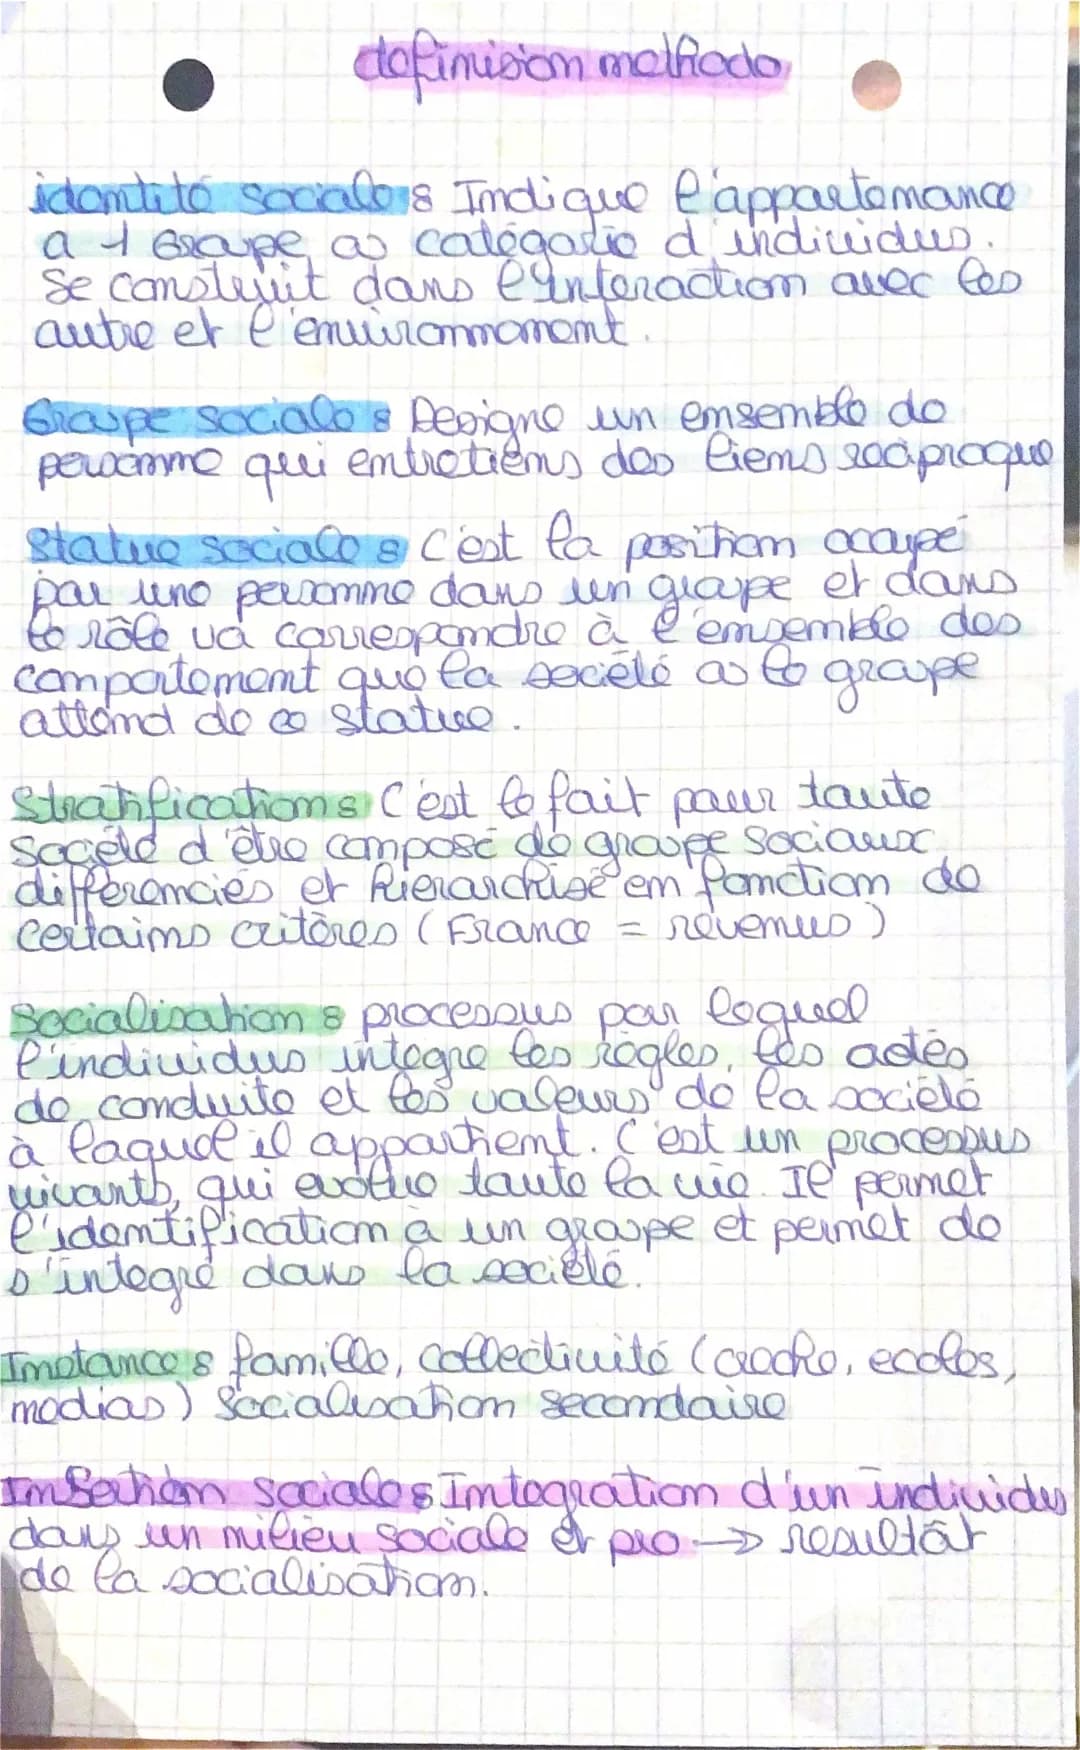 définision méthodo
identité sociale : Indique l'appartenance
a 1 Groupe ou catégorie d'individus.
Se construit dans l'interaction avec les
autre et l'environnement.
Groupe sociale : Designe un ensemble de
personne qui entretiens des liens réciproque
Statue sociale : C'est la position occupé
par une personne dans un groupe et dans
le rôle va correspondre à l'ensemble des
comportement que la société ou le groupe
attend de ce statue.
Stratification : C'est le fait pour toute
société d'être composé de groupe sociaux
différenciés et hierarchisé en fonction de
certains critères (France = revenus)
Socialisation : processus par lequel
l'individus integre les règles, les actes
de conduite et les valeurs de la société
à laquel il appartient. C'est un processus
vivants, qui evolue toute la vie. Il permet
l'identification à un groupe et permet de
s'integré dans la société.
Instance : famille, collectivité (creche, ecoles,
medias) Socialisation secondaire
Insertion sociale : Integration d'un individus
dans un milieu sociale et pro → resultat
de la socialisation.